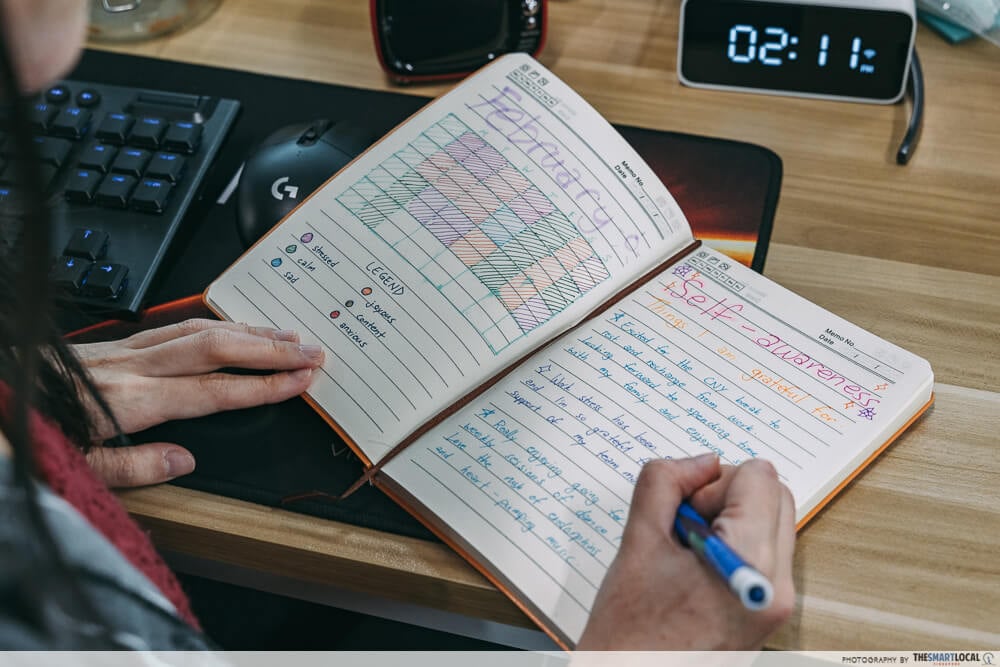 02:11
PM
G
February:
Memo No.
Date / /
LEGEND
stressed
calm
sad
joyous
content
anxious
Memo No.
Date / /
Self-awareness
Things I am grateful for
Excited for the CNY break to
rest and recharge from work
looking forward to spending time
with my family and enjoying
Work stress has been
and I'm so grateful
support of my
Really enjoying going for
weekly sessions of dance
Love the rush of endorphins
and heart-pumping music.
PHOTOGRAPHY BY THESMARTLOCAL
SINGAPORE